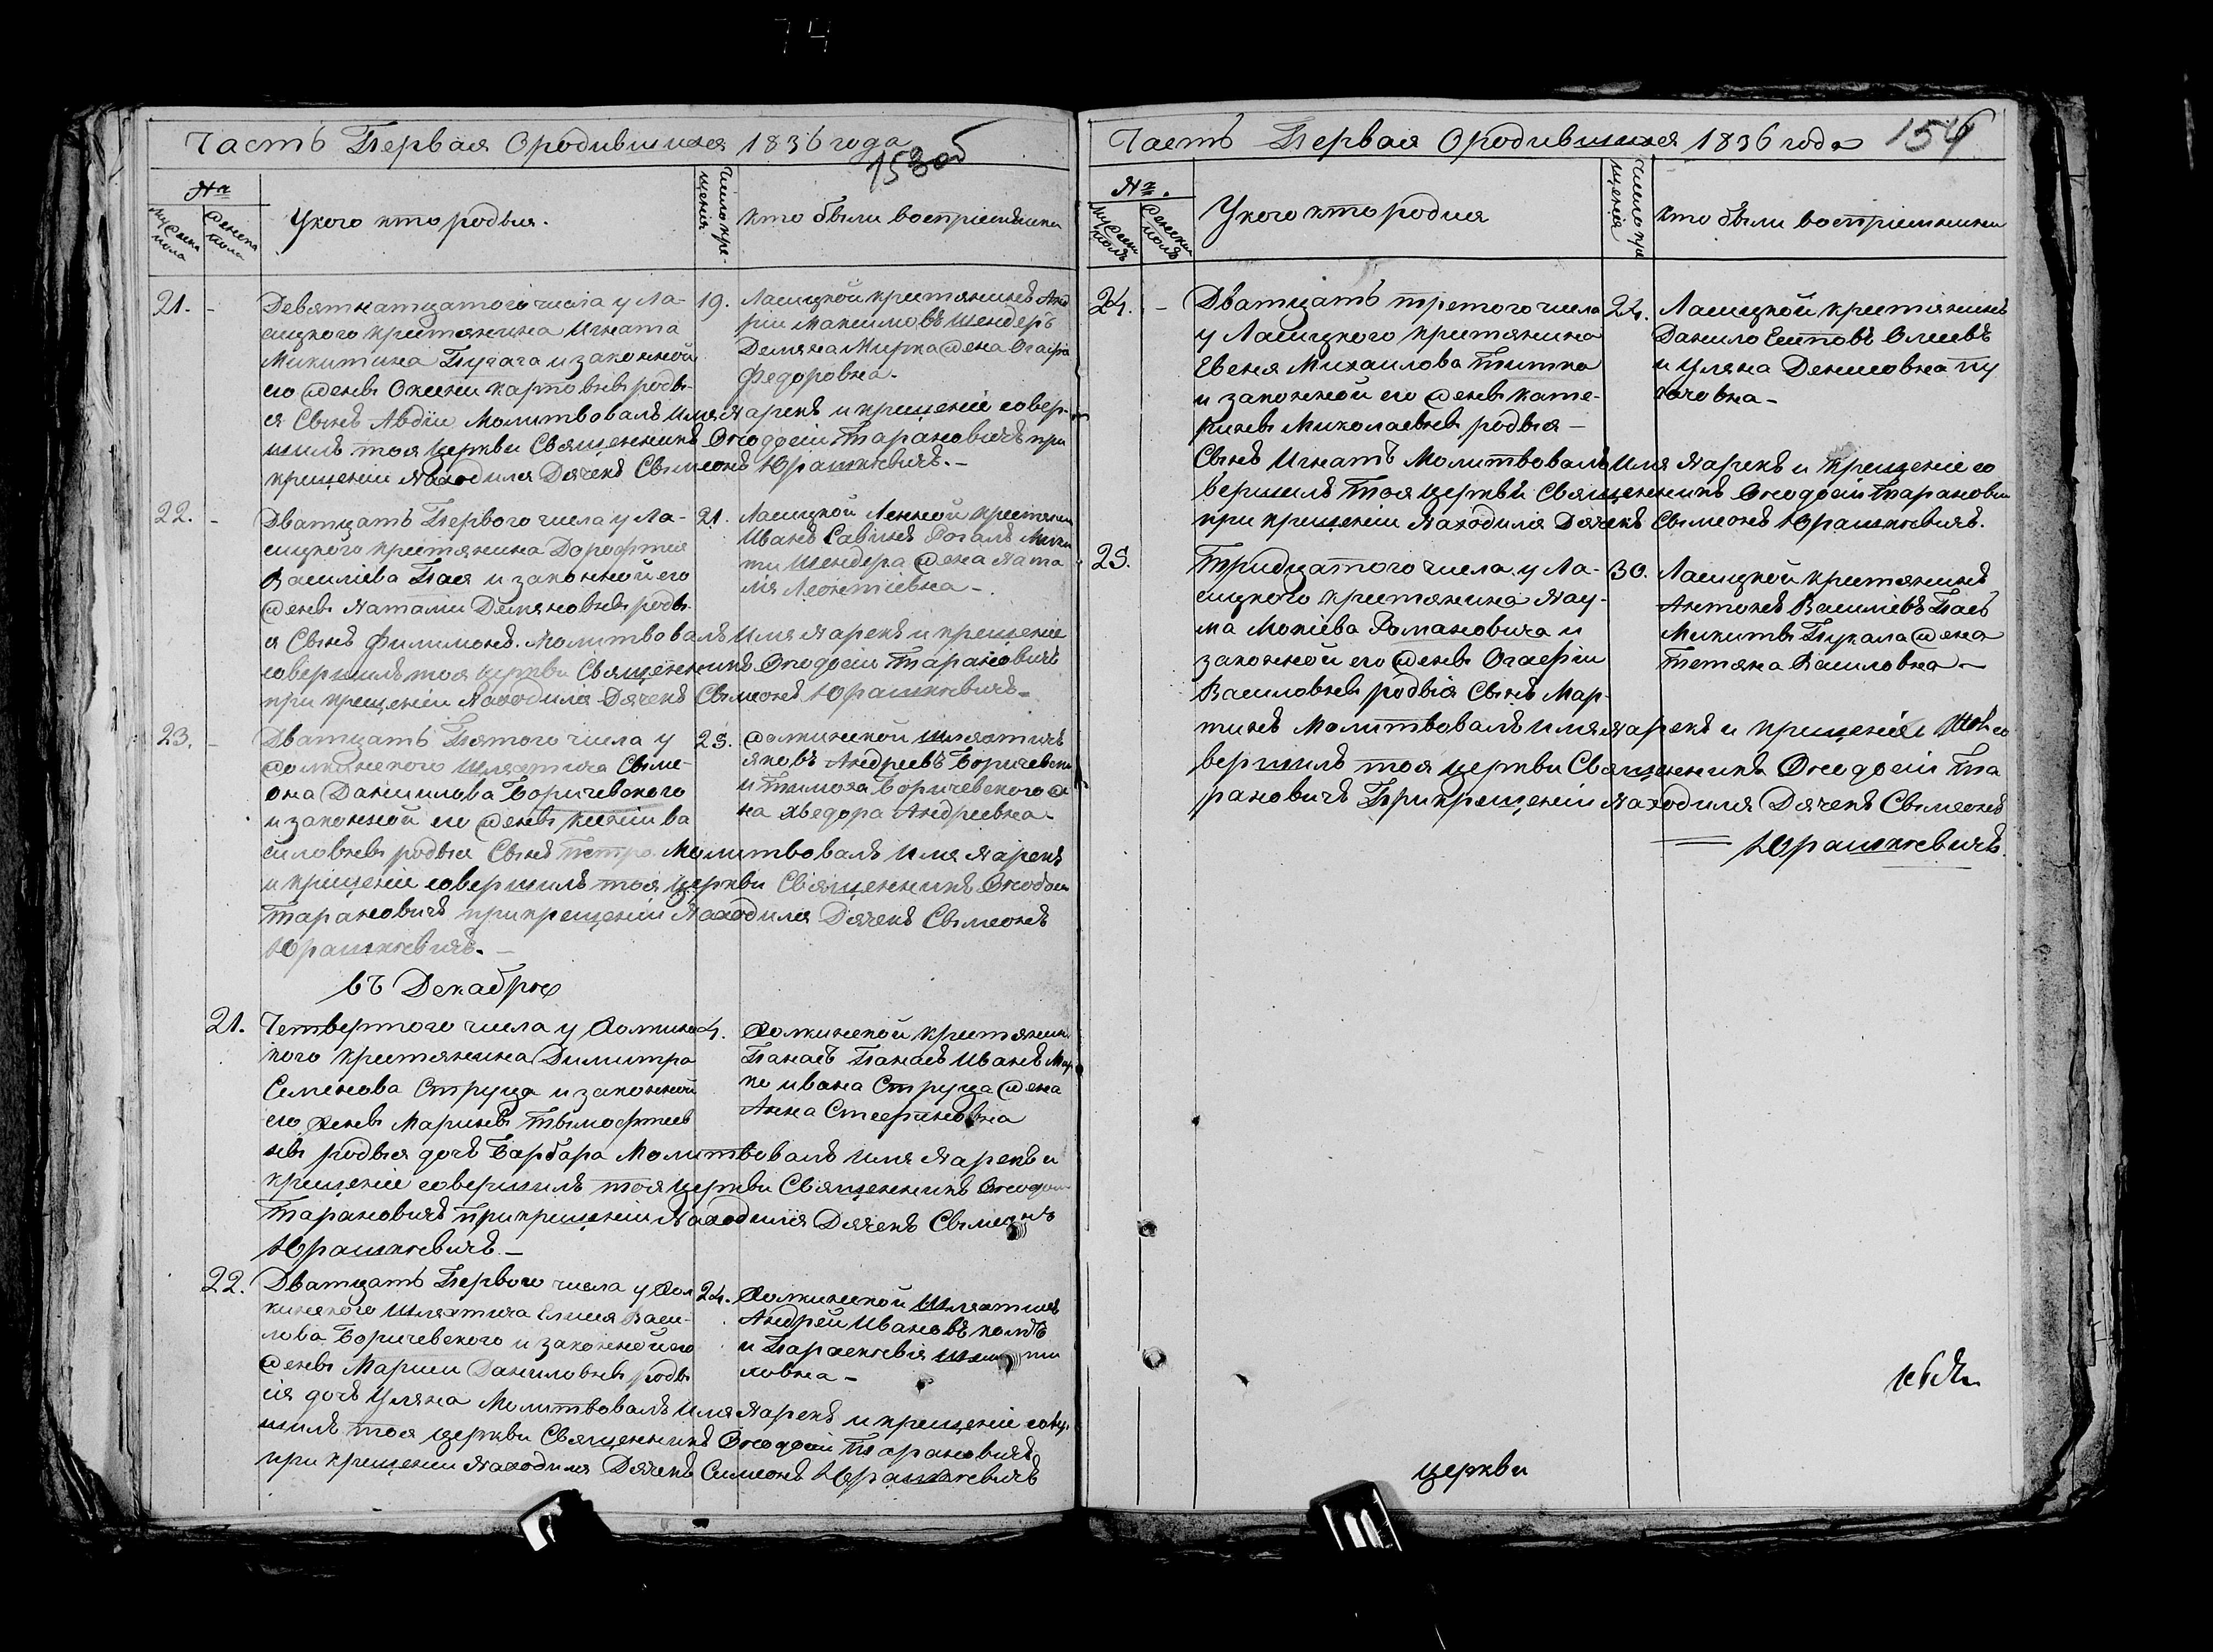 74
Часть Первая Ородившихся 1836 года
153 об
№
мужеска пола
женска пола
Укого кто родился.
Число крещенія
кто были восприемники
21. - Девятнатцатого числа у Ла-
сицкого крестянина Игната
Микитина Пугача и законной
его жены Оксени Карповны роди-
ся Сынъ Авдіи Молитвовалъ Имя Нарекъ и крещеніе совер-
шилъ тоя церкви Священникъ Феодосіи Тарановичъ при
крещеніи Находился Дячекъ Сымеонъ Юрашкевичъ. -
19. Ласицкой крестянинъ Анд
рiи Максимовъ Шендеръ
Демяна Мирка жена Огафія
Федоровна -
22. - Дватцать Первого числа у Ла-
сицкого крестянина Дорофтея
Василіева Пася и законной его
жены Наталіи Демяновны роди-
ся Сынъ Филимонъ Молитвовалъ Имя Нарекъ и крещеніе
совершилъ тоя церкви Священникъ Феодосіи Тарановичъ
при крещеніи Находился Дячекъ Сымеонъ Юрашкевичъ -
21. Ласицкой Ленной крестянин
Иванъ Савинъ Рогаль Мики
ты Шендера жена Ната
лія Леонтіевна -
23. - Дватцать Пятого числа у
жолкинского Шляхтича Сыме-
она Даніилова Боричевского
и законной его жены Ксеніи Ва
силовны родися Сынъ Петро Молитвовалъ Имя Нарекъ
и крещеніе совершилъ тоя церкви Священникъ Феодосіи
Тарановичъ при крещеніи Находился Дячекъ Сымеонъ
Юрашкевичъ. -
25. жолкинской Шляхтичъ
Яковъ Андреевъ Боричевски
и Тимоха Боричевского же
на Хведора Андреевна -
въ Декабрѣ
21. Четвертого числа у Жолкинс
кого крестянина Димитра
Семенова Струца и законной
его жены Марины Тымофтеев
ны родися дочь Барбара Молитвовалъ Имя Нарекъ и
крещеніе совершилъ тоя церкви Священникъ Феодосіи
Тарановичъ при крещеніи Находился Дячекъ Сымеонъ
Юрашкевичъ. -
4. Жолкинской крестянин
Панасъ Панасъ Иванъ Мар
ко Ивана Струца жена
Анна Стефановна
22. Дватцать Первого числа у Жол
кинского Шляхтича Елисея Васи-
лова Боричевского и законной его
жены Маріи Даниловны роди
ся дочь Уляна Молитвовалъ Имя Нарекъ и крещеніе совер
шилъ тоя церкви Священникъ Феодосіи Тарановичъ
при крещеніи Находился Дячекъ Симеонъ Юрашкевичъ
24. Жолкинской Шляхтичъ
Андрей Ивановъ
и Параскевія
ловна -
Часть Первая Ородившихся 1836 года
154
№.
мужескъ полъ
женскій полъ
Укого кто родися
Число крещенія
кто были восприемники
24. - Дватцать третого числа
у Ласицкого крестянина
Евсея Михаилова Титка
и законной его жены Кате-
рины Миколаевны родися -
Сынъ Игнатъ Молитвовалъ Имя Нарекъ и крещеніе со
вершилъ тоя церкви Священникъ Феодосіи Тарановичъ
при крещеніи Находился Дячекъ Сымеонъ Юрашкевичъ.
24. Ласицкой крестянинъ
Данило Есиповъ Олиевъ
и Уляна Денисовна Пу
гачовна -
25. Тридцатого числа у Ла-
сицкого крестянина Нау-
ма Мокіева Романовича и
законной его жены Огафіи
Василовны родися Сынъ Мар-
тинъ Молитвовалъ Имя Нарекъ и крещеніе со
вершилъ тоя церкви Священникъ Феодосіи Та
рановичъ При крещеніи Находился Дячекъ Сымеонъ
Юрашкевичъ.
30. Ласицкой крестянинъ
Антонъ Василіевъ Пась
Микиты Пукала жена
Тетяна Василовна -
церкви